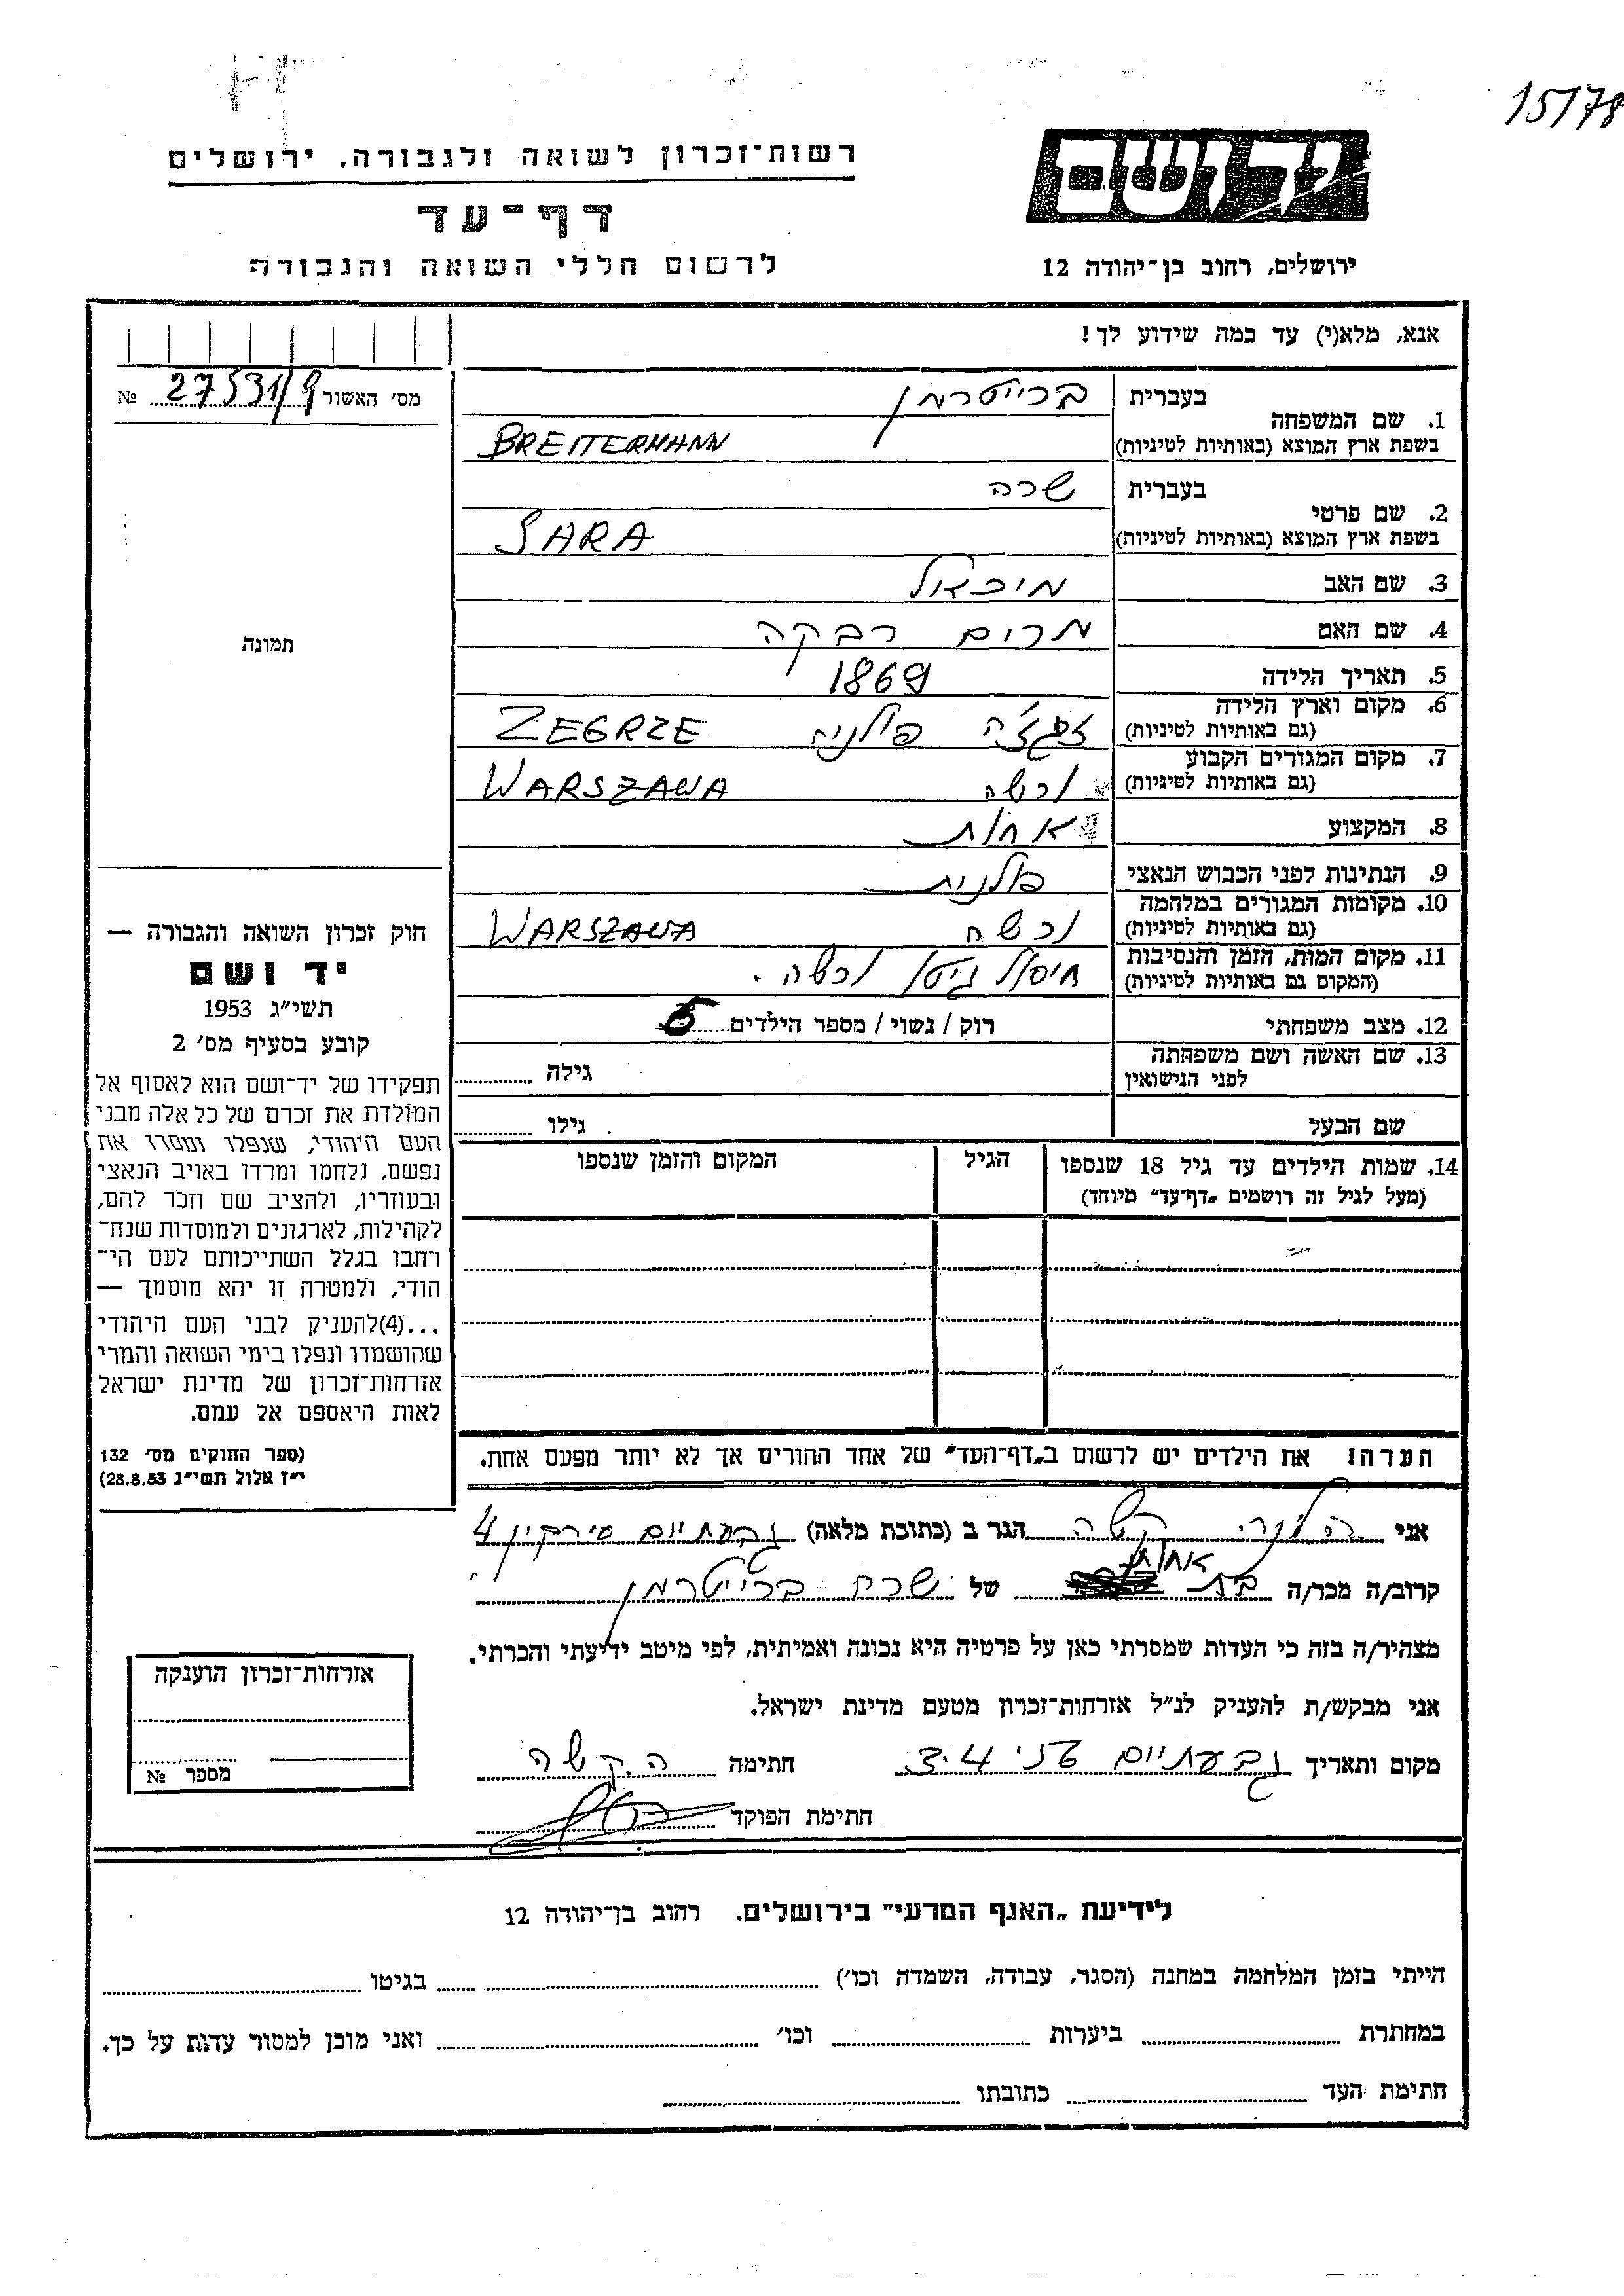 15178
רשות־זכרון לשואה ולגבורה, ירושלים
דף־עד
לרשום חללי השואה והגבורה
יד ושם
ירושלים, רחוב בן־יהודה 12
אנא, מלא(י) עד כמה שידוע לך!
מס׳ האשור 27531/9 №
תמונה
1. שם המשפחה
בעברית ברייטרמן
בשפת ארץ המוצא (באותיות לטיניות) BREITERMANN
2. שם פרטי
בעברית שרה
בשפת ארץ המוצא (באותיות לטיניות) SARA
3. שם האב מיכאל
4. שם האם מרים רבקה
5. תאריך הלידה 1869
6. מקום וארץ הלידה (גם באותיות לטיניות) זגז'ה פולניה ZEGRZE
7. מקום המגורים הקבוע (גם באותיות לטיניות) ורשה WARSZAWA
8. המקצוע אחות
9. הנתינות לפני הכבוש הנאצי פולנית
10. מקומות המגורים במלחמה (גם באותיות לטיניות) ורשה WARSZAWA
11. מקום המות, הזמן והנסיבות (המקום גם באותיות לטיניות) חיסול גיטו ורשה.
12. מצב משפחתי רוק / נשוי / מספר הילדים 5
13. שם האשה ושם משפחתה לפני הנישואין גילה
שם הבעל גילו
14. שמות הילדים עד גיל 18 שנספו
(מעל לגיל זה רושמים „דף־עד” מיוחד)
הגיל
המקום והזמן שנספו
חוק זכרון השואה והגבורה —
יד ושם
תשי״ג 1953
קובע בסעיף מס׳ 2
תפקידו של יד־ושם הוא לאסוף אל
המולדת את זכרם של כל אלה מבני
העם היהודי, שנפלו ומסרו את
נפשם, נלחמו ומרדו באויב הנאצי
ובעוזריו, ולהציב שם וזכר להם,
לקהילות, לארגונים ולמוסדות שנח־
רחבו בגלל השתייכותם לעם הי־
הודי, ולמטרה זו יהא מוסמך —
...(4)להעניק לבני העם היהודי
שהושמדו ונפלו בימי השואה והמרי
אזרחות־זכרון של מדינת ישראל
לאות היאספם אל עמם.
(ספר החוקים מס׳ 132
י״ז אלול תשי״ג 28.8.53)
הערה! את הילדים יש לרשום ב„דף־העד” של אחד ההורים אך לא יותר מפעם אחת.
אני הלינה קשה הגר ב (כתובת מלאה) גבעתיים סירקין 4
קרוב/ה מכר/ה בת אחות של שרה ברייטרמן
מצהיר/ה בזה כי העדות שמסרתי כאן על פרטיה היא נכונה ואמיתית, לפי מיטב ידיעתי והכרתי.
אני מבקש/ת להעניק לנ״ל אזרחות־זכרון מטעם מדינת ישראל.
מקום ותאריך גבעתיים 3.4 חתימה ה.קשה
חתימת הפוקד
אזרחות־זכרון הוענקה
מספר №
לידיעת „האגף המדעי” בירושלים. רחוב בן־יהודה 12
הייתי בזמן המלחמה במחנה (הסגר, עבודה, השמדה וכו׳) בגיטו
במחתרת ביערות וכו׳ ואני מוכן למסור עדות על כך.
חתימת העד כתובתו